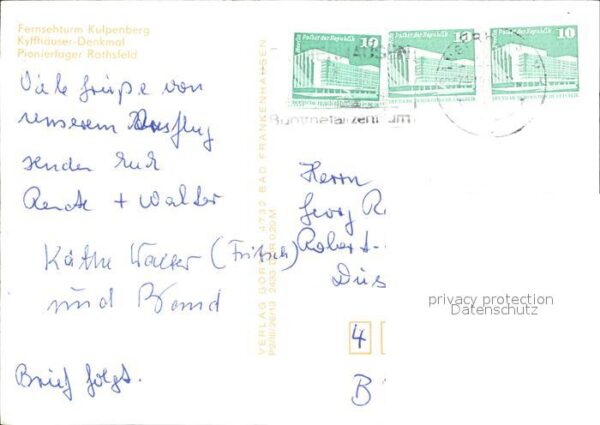 Fernsehturm Kulpenberg
Kyffhäuser-Denkmal
Pionierlager Rathsfeld
Viele Grüße von
unserem Ausflug
senden Euch
Renate + Walter
Käthe Walter (Fritsch)
und Bernd
Brief folgt.
VERLAG 4732 BAD FRANKENHAUSEN
0,20 M
Berlin Palast der Republik
10
Berlin Palast der Republik
10
Berlin Palast der Republik
10
HAUSEN
Buntmetallzentrum
Herrn
Georg R
Robert-
Düs
4
B
privacy protection
Datenschutz